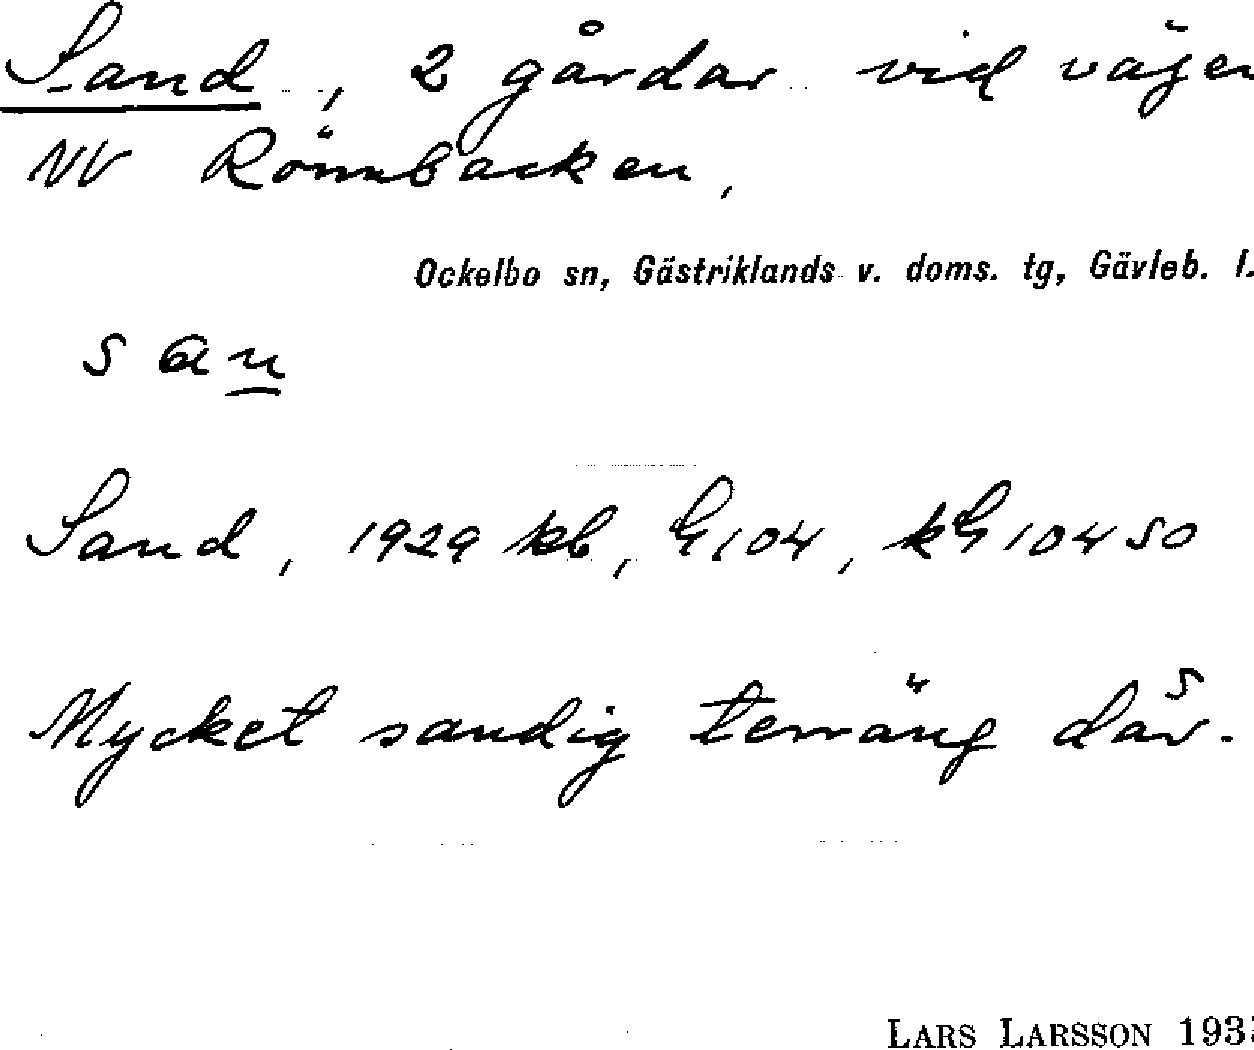 Sand, 2 gårdar vid vägen
NV Rönnbacken,
Ockelbo sn, Gästriklands v. doms. tg, Gävleb. l.
san
Sand, 1929 kb, G104, kG 104 SO
Mycket sandig terräng där.
LARS LARSSON 193